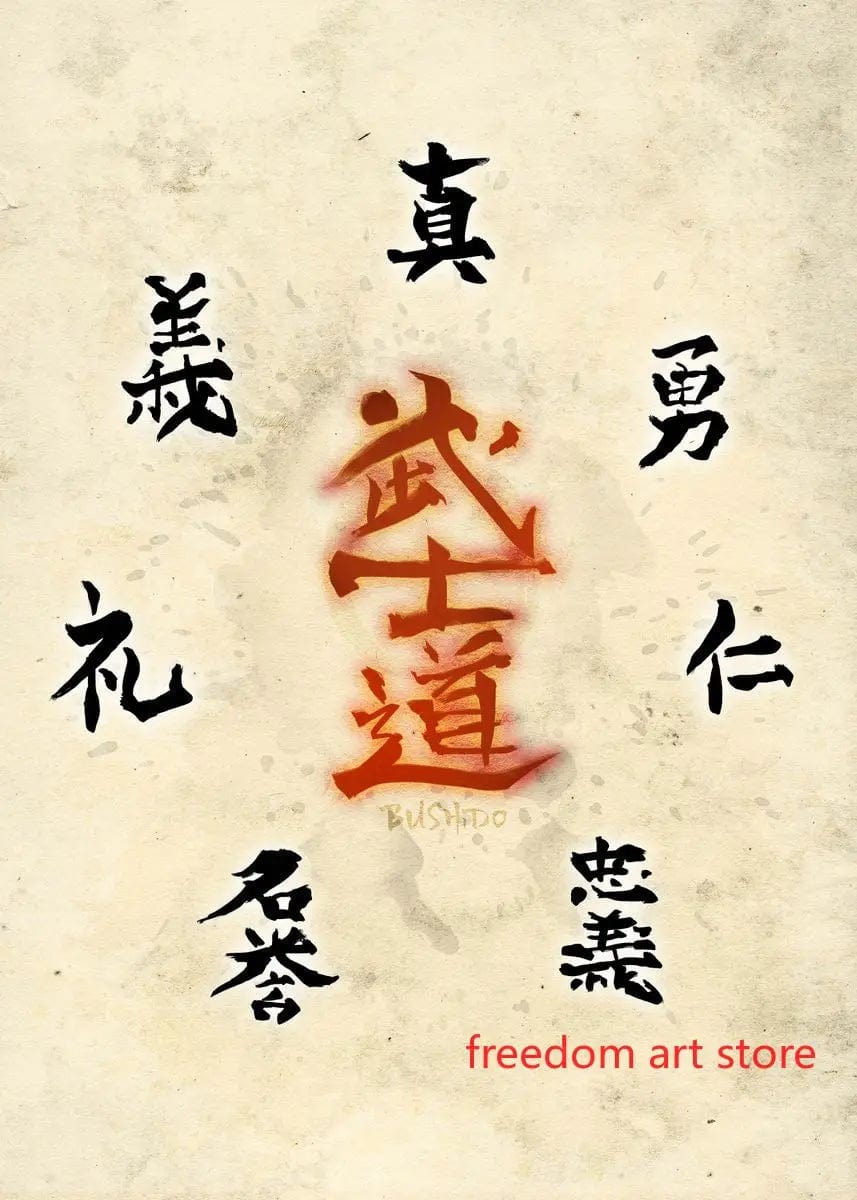 真
義
勇
武士道
礼
仁
BUSHIDO
名誉
忠義
freedom art store